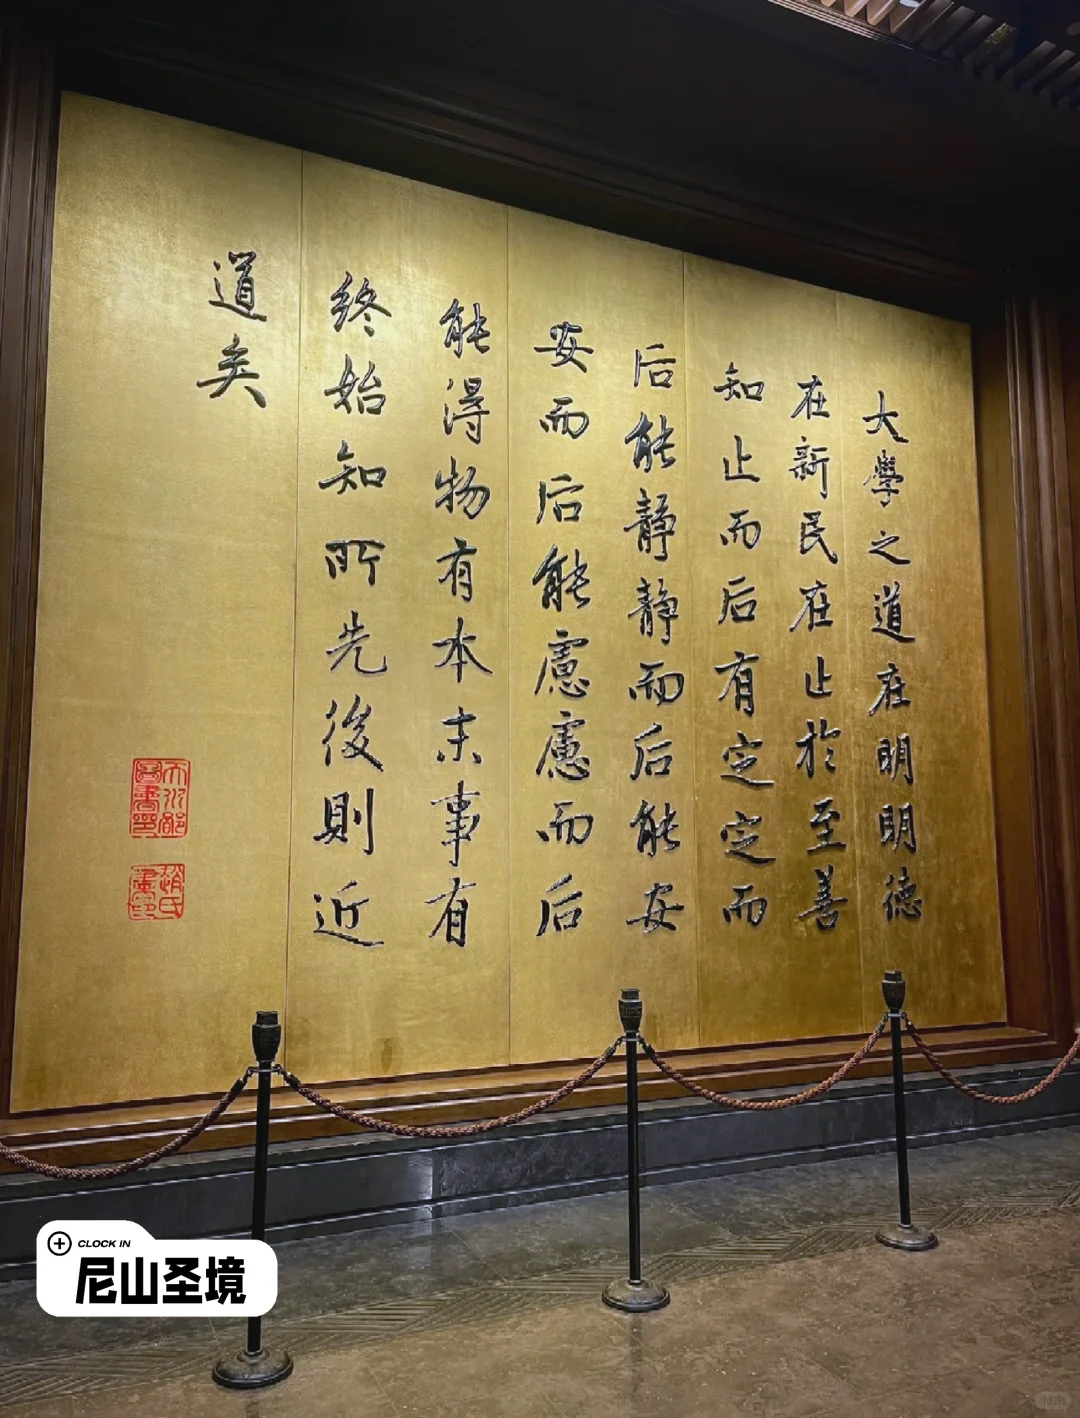 大學之道在明明德
在新民在止於至善
知止而后有定定而
后能静静而后能安
安而后能慮慮而后
能得物有本末事有
終始知所先後則近
道矣
天水郡圖書印
趙氏書印
CLOCK IN
尼山圣境